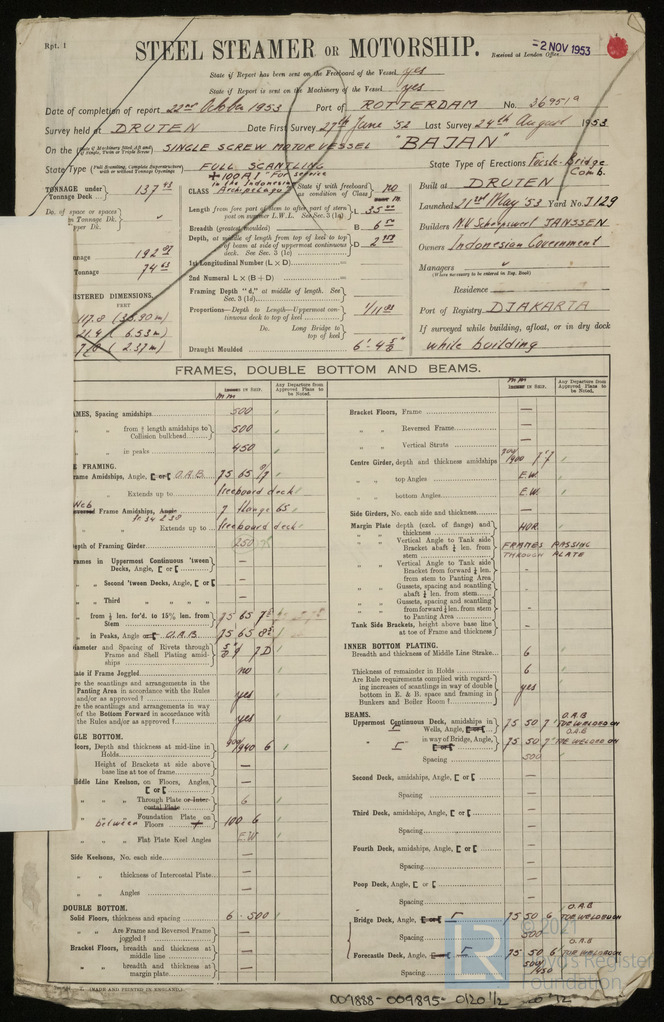 Rpt. 1
STEEL STEAMER OR MOTORSHIP.
Received at London Office
-2 NOV 1953
State if Report has been sent on the Freeboard of the Vessel yes
State if Report is sent on the Machinery of the Vessel yes
Date of completion of report 22nd October 1953 Port of ROTTERDAM No. 26951a
Survey held at DRUTEN Date First Survey 27th June '52 Last Survey 24th August 1953
On the SINGLE SCREW MOTOR VESSEL "BAJAN"
State Type FULL SCANTLING State Type of Erections Focsle-Bridge Comb.
TONNAGE under Tonnage Deck 137
CLASS +100A1 "For service in the Indonesian Archipelago"
State if with freeboard as condition of Class no
Built at DRUTEN
Launched 21st May '53 Yard No. J.129
Builders N.V. Scheepswerf JANSSEN
Owners Indonesian Government
Managers
(Where necessary to be entered in Reg. Book)
Residence
Port of Registry DJAKARTA
If surveyed while building, afloat, or in dry dock
while building
Do. of space or spaces
Length from fore part of stem to after part of stern post on summer L.W.L. See Sec. 3 (1a) L 35
Breadth (greatest moulded) B 6
Depth, at middle of length from top of keel to top of beam at side of uppermost continuous deck. See Sec. 3 (1c) D
1st Longitudinal Number (L × D)
2nd Numeral L × (B + D)
Framing Depth "d," at middle of length. See Sec. 3 (1d)
Proportions—Depth to Length—Uppermost continuous deck to top of keel
Do. Long Bridge to top of keel
Draught Moulded 6'
ISTERED DIMENSIONS.
FEET
21.4 (6.53 m)
(2.37 m)
FRAMES, DOUBLE BOTTOM AND BEAMS.
Any Departure from Approved Plans to be Noted.
AMES, Spacing amidships 500
from ⅕ length amidships to Collision bulkhead 500
in peaks 450
E FRAMING.
rame Amidships, Angle, O.A.B. 75 65 7
Extends up to freeboard deck
Web Frames Amidships 7 flange 65
Extends up to freeboard deck
epth of Framing Girder 250
rames in Uppermost Continuous 'tween Decks, Angle, [ or [ —
Second 'tween Decks, Angle, [ or [ —
Third —
from ⅕ len. for'd. to 15% len. from Stem 75 65
in Peaks, Angle O.A.B. 75 65
iameter and Spacing of Rivets through Frame and Shell Plating amidships 7D
tate if Frame Joggled no
re the scantlings and arrangements in the Panting Area in accordance with the Rules and/or as approved? yes
re the scantlings and arrangements in way of the Bottom Forward in accordance with the Rules and/or as approved? yes
GLE BOTTOM.
loors, Depth and thickness at mid-line in Holds 6
Height of Brackets at side above base line at toe of frame —
iddle Line Keelson, on Floors, Angles, [ or [ —
Through Plate or Intercostal Plate 6
between Foundation Plate on Floors 100 6
Flat Plate Keel Angles E.W.
Side Keelsons, No. each side —
thickness of Intercostal Plate —
Angles —
DOUBLE BOTTOM.
Solid Floors, thickness and spacing 6 - 500
Are Frame and Reversed Frame joggled? —
Bracket Floors, breadth and thickness at middle line —
breadth and thickness at margin plate —
Bracket Floors, Frame —
Reversed Frame —
Vertical Struts —
Centre Girder, depth and thickness amidships
top Angles E.W.
bottom Angles E.W.
Side Girders, No. each side and thickness —
Margin Plate depth (excl. of flange) and thickness HOR.
Vertical Angle to Tank side Bracket abaft ¼ len. from stem FRAMES PASSING THROUGH PLATE
Vertical Angle to Tank side Bracket from forward ¼ len. from stem to Panting Area —
Gussets, spacing and scantling abaft ¼ len. from stem —
Gussets, spacing and scantling from forward ¼ len. from stem to Panting Area —
Tank Side Brackets, height above base line at toe of Frame and thickness —
INNER BOTTOM PLATING.
Breadth and thickness of Middle Line Strake 6
Thickness of remainder in Holds 6
Are Rule requirements complied with regarding increases of scantlings in way of double bottom in E. & B. space and framing in Bunkers and Boiler Room? yes
BEAMS.
Uppermost Continuous Deck, amidships in Wells, Angle, 75 50 7 O.A.B TOE WELDED ON
in way of Bridge, Angle, 75 50 7 O.A.B TOE WELDED ON
Spacing 500
Second Deck, amidships, Angle, [ or [ —
Spacing —
Third Deck, amidships, Angle, [ or [ —
Spacing —
Fourth Deck, amidships, Angle, [ or [ —
Spacing —
Poop Deck, Angle, [ or [ —
Spacing —
Bridge Deck, Angle, 75 50 6 O.A.B TOE WELDED ON
Spacing 500
Forecastle Deck, Angle, 75 50 6 O.A.B TOE WELDED ON
Spacing 500/450
© 2021
Lloyd's Register Foundation
(MADE AND PRINTED IN ENGLAND.)
009888-009895-0120 1/2